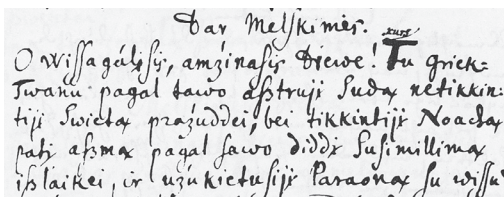 Dar Melskimės.
kurs
O Wissagálįsis, amźinasis Diewe! Tu griek=
Twanu pagal tawo aßtruji Sudą netikkin=
tijį Swietą praźuddei, bei tikkintijį Noachą
patį aßmą pagal sawo diddį Susimillimą
ißlaikei, ir uźukietusijį Paraoną su wissu